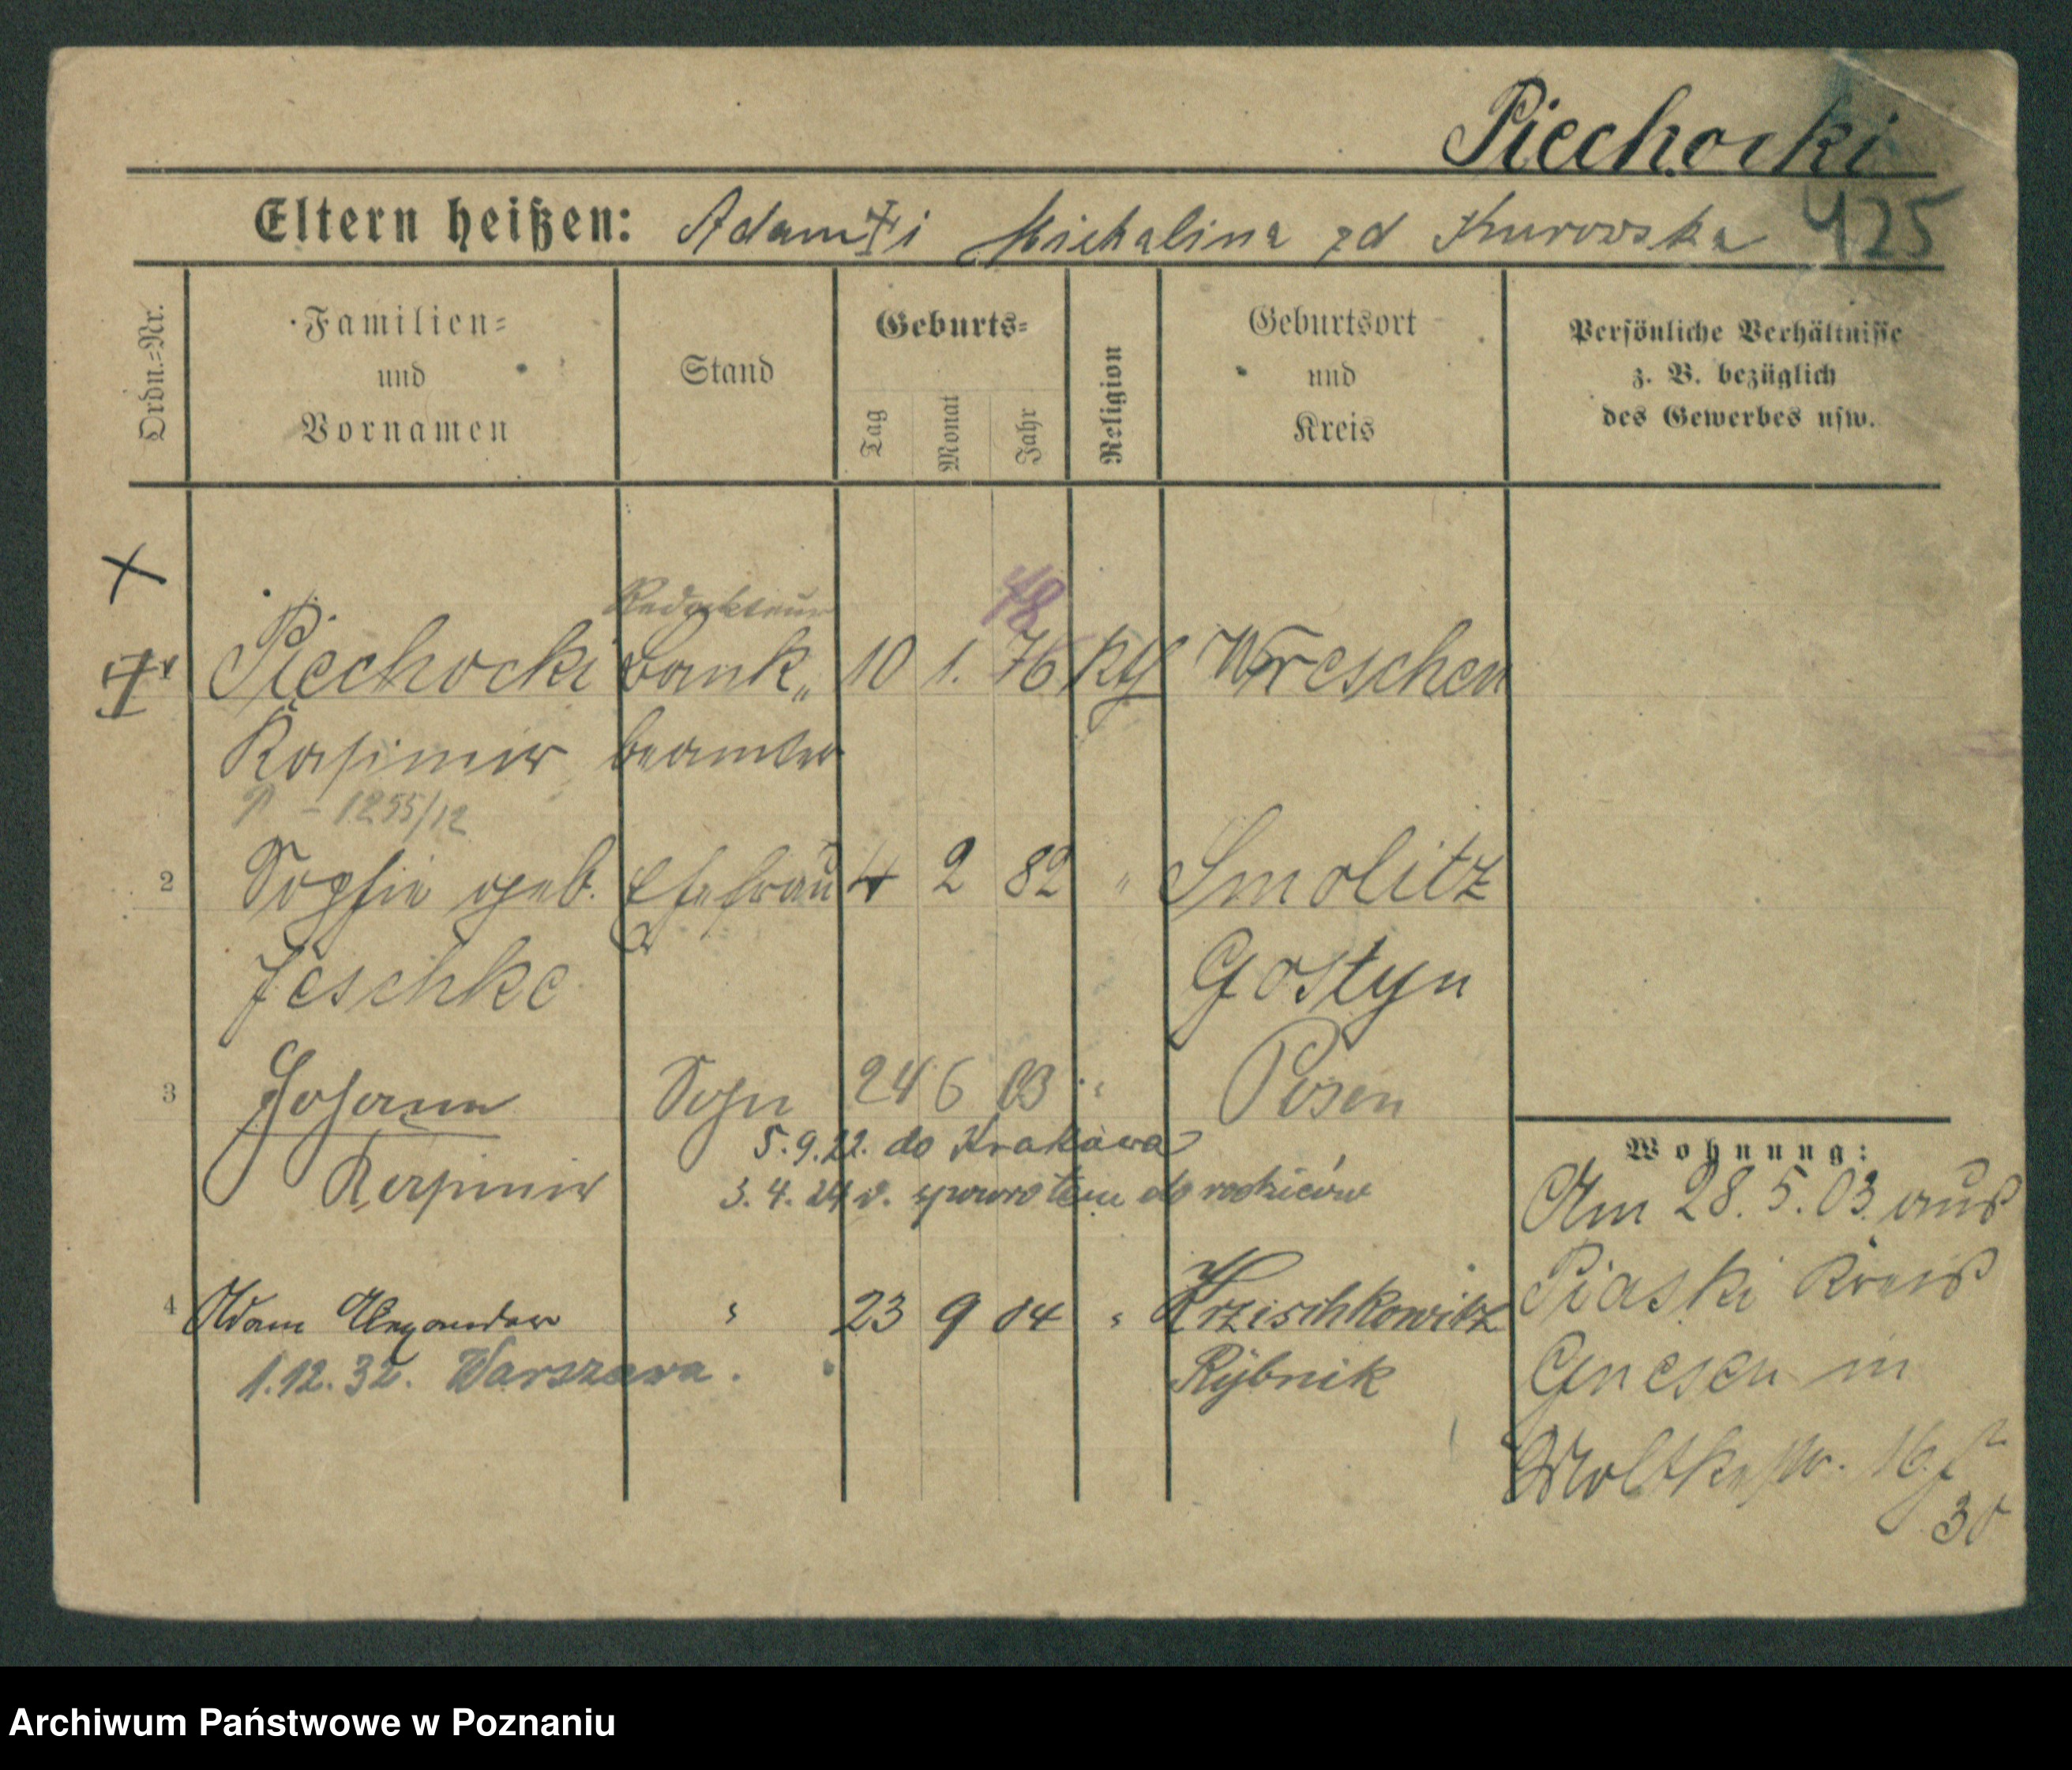 Piechocki
425
Eltern heißen: Adam i Michalina zd Kurowska
Ordn.-Nr.
Familien-
und
Vornamen
Stand
Geburts-
Tag
Monat
Jahr
Religion
Geburtsort
und
Kreis
Persönliche Verhältnisse
z. B. bezüglich
des Gewerbes usw.
Redakteur 78
Piechocki Bank„ 10 1. 76 kth Wreschen
Kasimir beamter
P - 1255/12
2 Sophie geb. Ehefrau 4 2 82 " Smolitz
Jeschke Gostyn
3 Johann Sohn 24 6 03 " Posen
5.9.22. do Krakowa
Kasimir 3.4.24 r. zpowrotem do rodziców
4 Adam Alexander " 23 9 04 " Krzischkowitz
1.12.32. Warszawa. Rybnik
Wohnung:
Am 28.5.03. aus
Piaski Kreis
Gnesen in
Moltkestr. 16
30
Archiwum Państwowe w Poznaniu